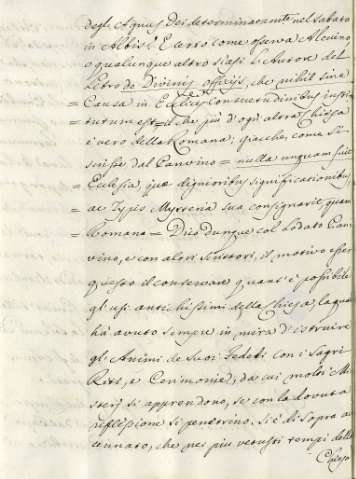 degli Agnus Dei determinatamente nel Sabato
in Albis? È certo come osserva Alcuino
o qualunque altro siasi l'Autore del
Libro de Divinis officijs, che nihil sine
= Causa in Eccl.cis Consuetudinibus insti=
= tutum est = il che più d'ogni altra Chiesa
è vero della Romana; giacchè come si
scrisse dal Panvino = nulla unquam fuit
= Ecclesia, quæ dignioribus significationibus,
= ac Typis Mysteria sua consignarit, quam
= Romana = Dico dunque col lodato Pan=
vino, e con altri Scrittori, il motivo esser
questo di conservare quant'è possibile
gl'usi antichissimi della Chiesa, la qua
hà avuto sempre in mira d'istruire
gl'Animi de Suoi Fedeli con i Sagri
Riti, e Cerimonie, da cui molti Mi=
sterj si apprendono, se con la dovuta
riflessione si penetrino. Si è di sopra ac
cennato, che nei più vetusti tempi della
Chiesa